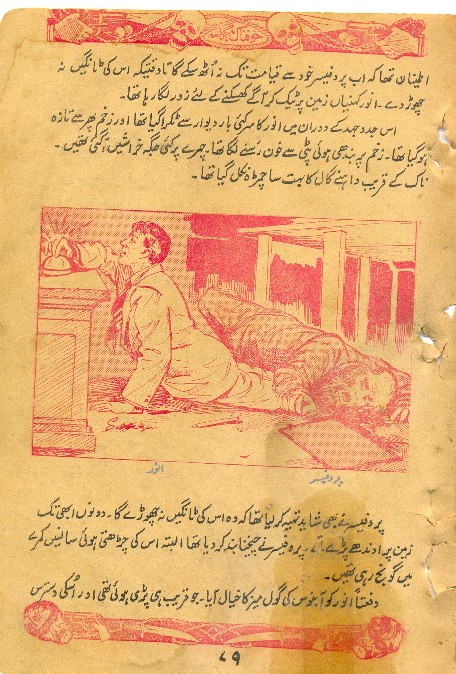 خوفناک ہنگامہ
اطمینان تھا کہ اب پروفیسر خود سے قیامت تک نہ اُٹھ سکے گا تاوقتیکہ اس کی ٹانگیں نہ
چھوڑ دے۔ انور کہنیاں زمین پر ٹیک کر آگے کھسکنے کے لئے زور لگا رہا تھا۔
اس جدوجہد کے دوران میں انور کا سر کئی بار دیوار سے ٹکرا گیا تھا اور زخم پھر سے تازہ
ہو گیا تھا۔ زخم پر بندھی ہوئی پٹی سے خون رسنے لگا تھا۔ چہرے پر کئی جگہ خراشیں آگئی تھیں۔
ناک کے قریب داہنے گال کا بہت سا چمڑہ نکل گیا تھا۔
انور
پروفیسر
پروفیسر نے بھی شاید تہیہ کر لیا تھا کہ وہ اس کی ٹانگیں نہ چھوڑے گا۔ دونوں ابھی تک
زمین پر اوندھے پڑے تھے۔ پروفیسر نے چیخنا بند کر دیا تھا البتہ اس کی چڑھتی ہوئی سانسیں کمرے
میں گونج رہی تھیں۔
دفعتاً انور کو آبنوس کی گول میز کا خیال آیا۔ جو قریب ہی پڑی ہوئی تھی اور اسکی دسترس
۷۹